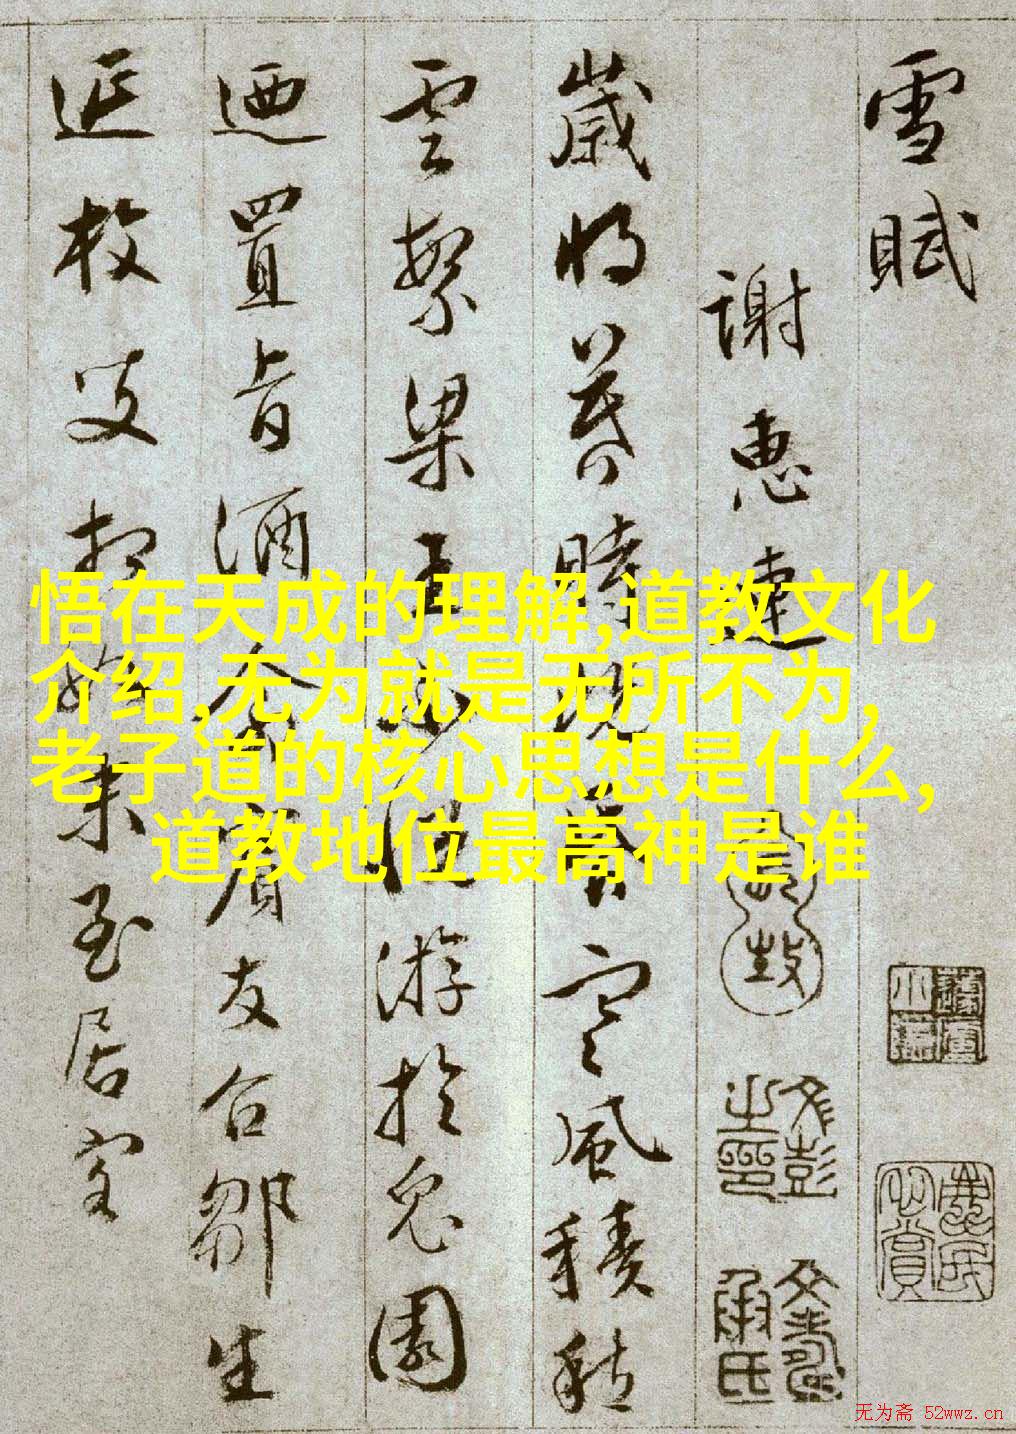 雪賦
謝惠連
歲将暮時既昏寒風積
雲繁梁王不悦游於兔園
迺置旨酒命賓友召鄒生
延枚叟相如末至居客
悟在天成的理解,道教文化
介绍,无为就是无所不为,
老子道的核心思想是什么,
道教地位最高神是谁
文彭之印
无为斋 52wwz.cn